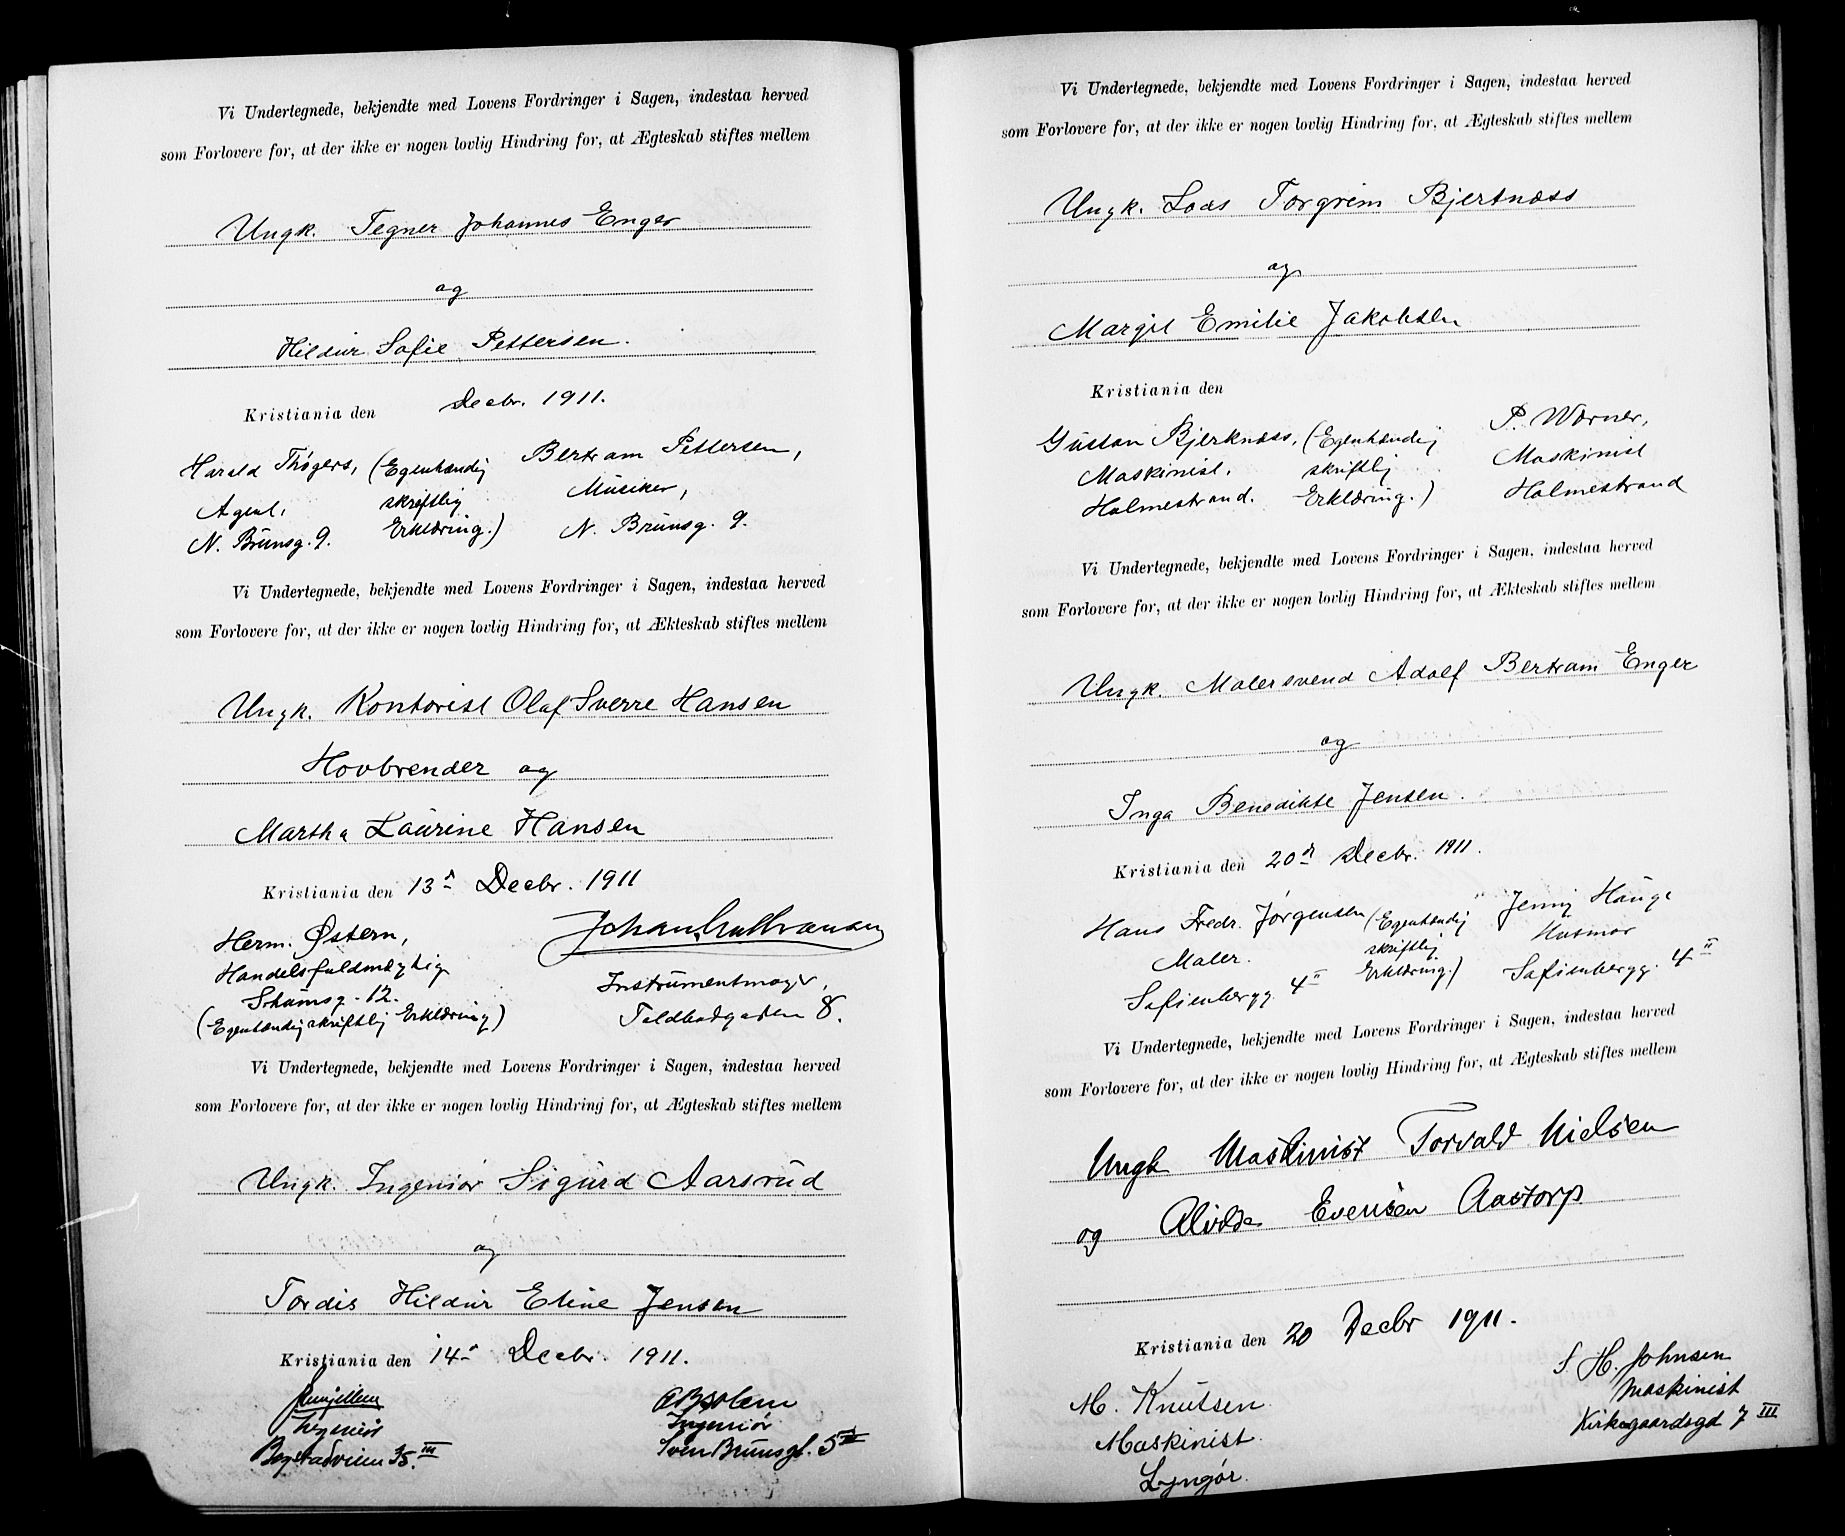 Vi Undertegnede, bekjendte med Lovens Fordringer i Sagen, indestaa herved
som Forlovere for, at der ikke er nogen lovlig Hindring for, at Ægteskab stiftes mellem
Ungk. Tegner Johannes Enger
og
Hildur Sofie Pettersen.
Kristiania den Decbr. 1911.
Harald Thøgers, (Egenhændig Bertram Pettersen,
Agent, skriftlig Musiker,
N. Brunsg. 9. Erklæring.) N. Brunsg. 9.
Vi Undertegnede, bekjendte med Lovens Fordringer i Sagen, indestaa herved
som Forlovere for, at der ikke er nogen lovlig Hindring for, at Ækteskab stiftes mellem
Ungk. Kontorist Olaf Sverre Hansen
Hovbrender og
Martha Laurine Hansen
Kristiania den 13d Decbr. 1911
Herm. Østern, Johan
Handelsfuldmægtig Instrumentmager,
12. Toldbodgaden 8.
(Egenhændig skriftlig Erklæring)
Vi Undertegnede, bekjendte med Lovens Fordringer i Sagen, indestaa herved
som Forlovere for, at der ikke er nogen lovlig Hindring for, at Ægteskab stiftes mellem
Ungk. Ingeniør Sigurd Aarsrud
og
Tordis Hildur Eline Jensen
Kristiania den 14d Decbr. 1911.
Ingeniør Ingeniør
Bogstadveien 35 III Sven Brunsgt. 5
Vi Undertegnede, bekjendte med Lovens Fordringer i Sagen, indestaa herved
som Forlovere for, at der ikke er nogen lovlig Hindring for, at Ægteskab stiftes mellem
Ungk. Lods Torgrim Bjertnæss
og
Margit Emilie Jakobsen
Kristiania den
Gustav Bjerknæss, (Egenhændig P. Wørner,
Maskinist. skriftlig Maskinist
Holmestrand. Erklæring.) Holmestrand
Vi Undertegnede, bekjendte med Lovens Fordringer i Sagen, indestaa herved
som Forlovere for, at der ikke er nogen lovlig Hindring for, at Ækteskab stiftes mellem
Ungk. Malersvend Adolf Bertram Enger
og
Inga Benedikte Jensen.
Kristiania den 20d Decbr. 1911.
Hans Fredr. Jørgensen (Egenhændig Jenny Hauge
Maler. skriftlig Husmor
Sofienbergg. 4 II Erklæring.) Sofienbergg. 4 II
Vi Undertegnede, bekjendte med Lovens Fordringer i Sagen, indestaa herved
som Forlovere for, at der ikke er nogen lovlig Hindring for, at Ægteskab stiftes mellem
Ungk Maskinist Torvald Nielsen
og Alvilde Evensen Aastorp
Kristiania den 20 Decbr 1911.
M. Knutsen S H. Johnsen
Maskinist. Maskinist
Lyngør. Kirkegaardsgd 7 III